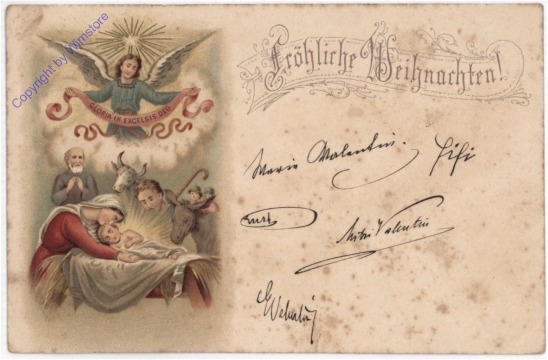 Copyright by Wimstore
GLORIA IN EXCELSIS DEO
Fröhliche Weihnachten!
Maria Valentin. Fifi
Mitzi Valentin